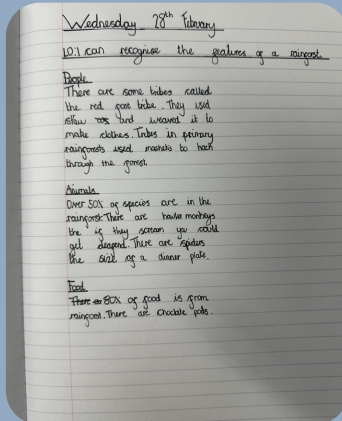 Wednesday 28th February
LO: I can recognise the features of a raingorst.
People
There are some tribes called
the red foot tribe. They used
straw and weaved it to
make clothes. Tribes in primary
raingorests used to hack
through the forest.
Animals
Over 50% of species are in the
raingorst. There are howler monkeys
the if they scream you could
get deagend. There are spiders
the size of a dinner plate.
Food
80% of food is from
raingorst. There are choclate pods.